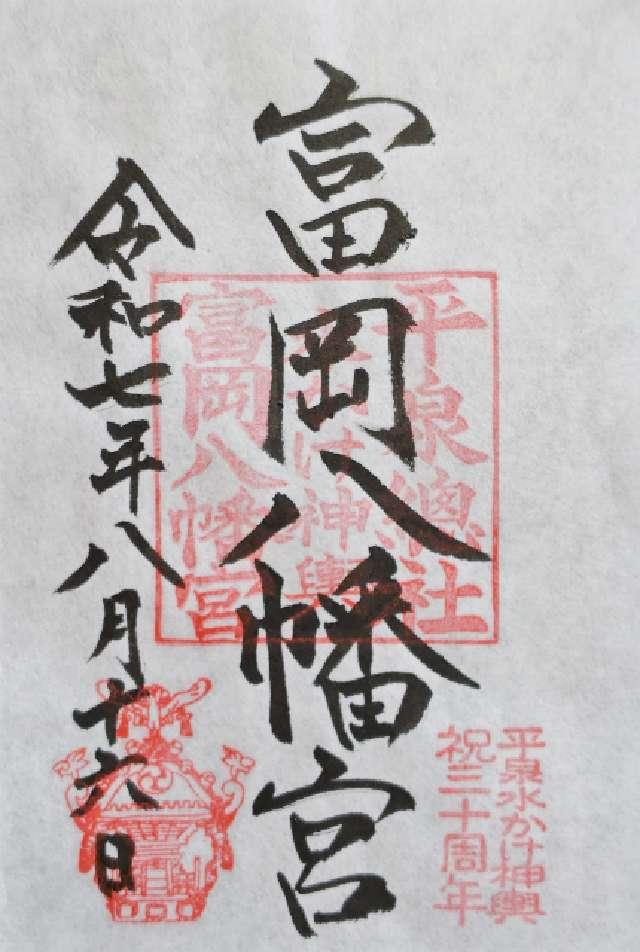 富岡八幡宮
令和七年八月十六日
平泉總社
水かけ神輿
富岡八幡宮
平泉水かけ神輿
祝三十周年